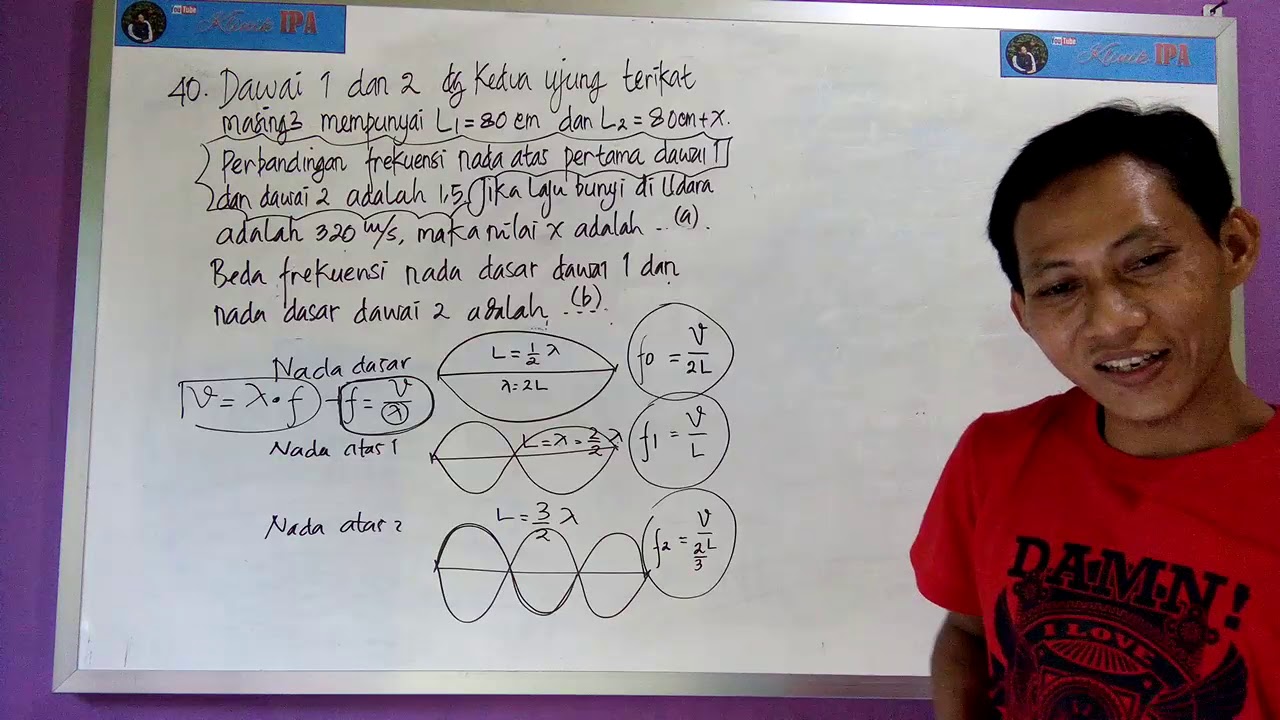 You Tube
Klinik IPA
You Tube
Klinik IPA
40. Dawai 1 dan 2 dg Kedua ujung terikat
masing2 mempunyai L1 = 80 cm dan L2 = 80cm+x.
Perbandingan frekuensi nada atas pertama dawai 1
dan dawai 2 adalah 1,5. Jika Laju bunyi di Udara
adalah 320 m/s, maka nilai x adalah ... (a).
Beda frekuensi nada dasar dawai 1 dan
nada dasar dawai 2 adalah .... (b)
Nada dasar
L = 1/2 λ
λ = 2L
f0 = V/2L
V = λ • f → f = V/λ
Nada atas 1
L = λ = 2/2 λ
f1 = V/L
Nada atas 2
L = 3/2 λ
f2 = V/(2/3 L)
DAMN!
I LOVE